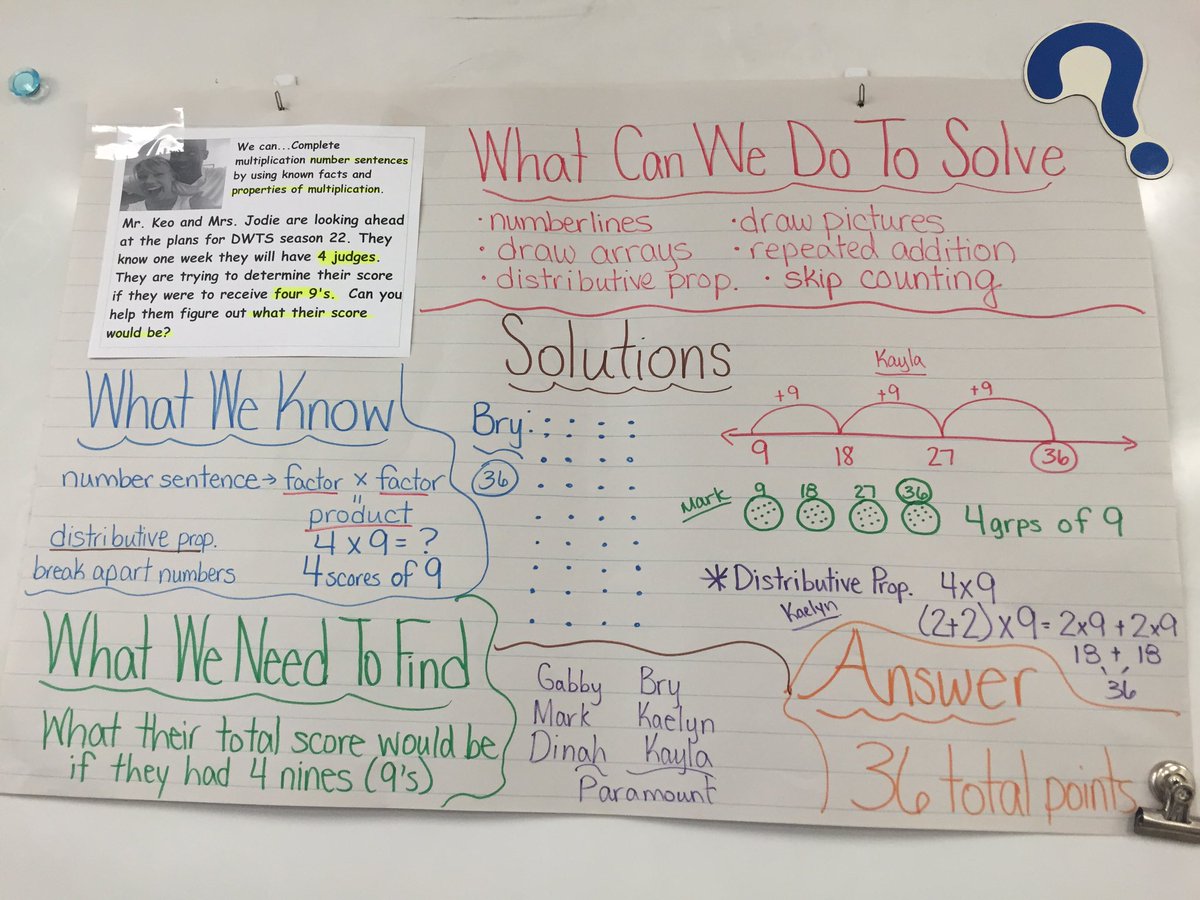 We can...Complete
multiplication number sentences
by using known facts and
properties of multiplication.
Mr. Keo and Mrs. Jodie are looking ahead
at the plans for DWTS season 22. They
know one week they will have 4 judges.
They are trying to determine their score
if they were to receive four 9's. Can you
help them figure out what their score
would be?
What Can We Do To Solve
• numberlines • draw pictures
• draw arrays • repeated addition
• distributive prop. • skip counting
What We Know
number sentence → factor × factor
=
product
distributive prop. 4 × 9 = ?
break apart numbers 4 scores of 9
What We Need To Find
What their total score would be
if they had 4 nines (9's)
Solutions
Bry:
36
Kayla
+9 +9 +9
9 18 27 36
Mark 9 18 27 36
4 grps of 9
* Distributive Prop. 4×9
Kaelyn (2+2)×9 = 2×9 + 2×9
18 + 18
36
Gabby Bry
Mark Kaelyn
Dinah Kayla
Paramount
Answer
36 total points
?